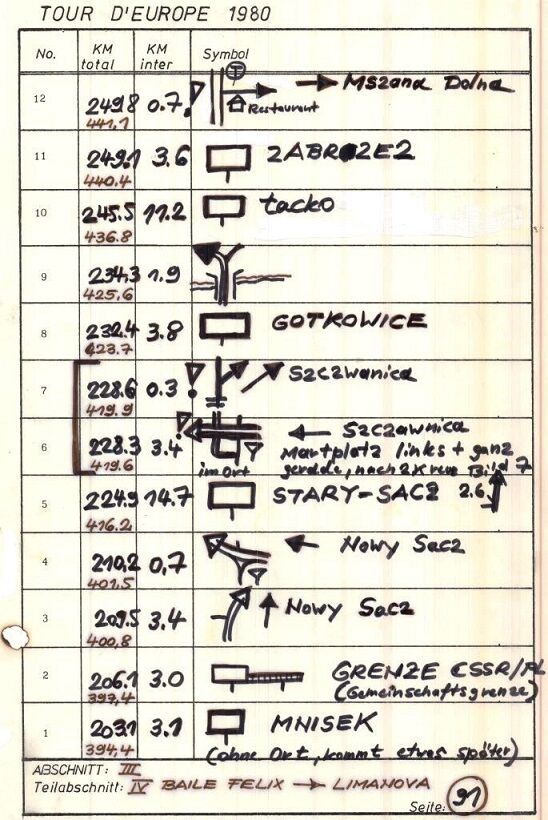 TOUR D'EUROPE 1980
No. KM total KM inter Symbol
12 249.8 0.7 T Restaurant → Mszana Dolna
441.1
11 249.1 3.6 ZABRZEZ
440.4
10 245.5 11.2 tacko
436.8
9 234.3 1.9
425.6
8 232.4 3.8 GOTKOWICE
423.7
7 228.6 0.3 ! Szczwanica
419.9
6 228.3 3.4 ! im Ort ← Szczawnica
419.6 Marktplatz links + ganz
gerade, nach 2 Kreuz Bild 7
5 224.9 14.7 STARY-SACZ 2.6
416.2
4 210.2 0,7 ← Nowy Sacz
401.5
3 209.5 3.4 ↑ Nowy Sacz
400,8
2 206.1 3.0 GRENZE CSSR/PL
397,4 (Gemeinschaftsgrenze)
1 203.1 3.1 MNISEK
394,4 (ohne Ort, kommt etwas später)
ABSCHNITT: III
Teilabschnitt: IV BAILE FELIX → LIMANOVA
Seite: 91